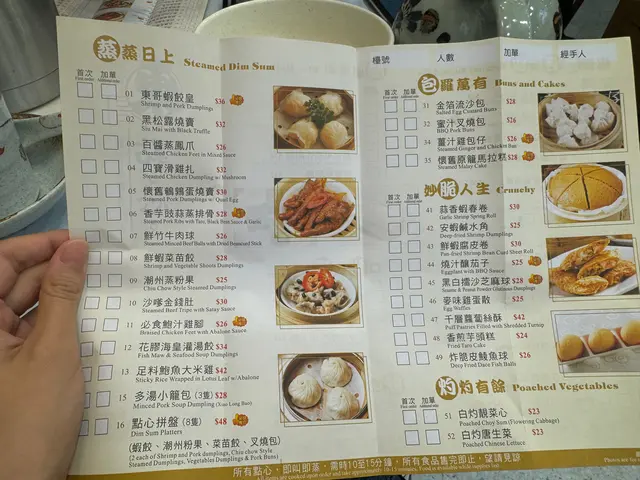 蒸 蒸日上 Steamed Dim Sum
首次 加單
First order Additional order
01 東哥蝦餃皇 $36
Shrimp and Pork Dumplings
02 黑松露燒賣 $32
Siu Mai with Black Truffle
03 百醬蒸鳳爪 $26
Steamed Chicken Feet in Mixed Sauce
04 四寶滑雞扎 $32
Steamed Chicken Dumpling w/ Mushroom
05 懷舊鵪鶉蛋燒賣 $30
Steamed Pork Dumplings w/ Quail Egg
06 香芋豉蒜蒸排骨 $28
Steamed Pork Ribs with Taro, Black Bean Sauce & Garlic
07 鮮竹牛肉球 $26
Steamed Minced Beef Balls with Dried Beancurd Stick
08 鮮蝦菜苗餃 $28
Shrimp and Vegetable Shoots Dumpling
09 潮州蒸粉果 $25
Chiu Chow Style Steamed Dumplings
10 沙嗲金錢肚 $30
Steamed Beef Tripe with Satay Sauce
11 必食鮑汁雞腳 $26
Braised Chicken Feet with Abalone Sauce
12 花膠海皇灌湯餃 $34
Fish Maw & Seafood Soup Dumplings
13 足料鮑魚大米雞 $42
Sticky Rice Wrapped in Lotus Leaf w/Abalone
15 多湯小籠包 (3隻) $28
Minced Pork Soup Dumpling (Xiao Long Bao)
16 點心拼盤 (8隻) $48
Dim Sum Platters
(蝦餃、潮州粉果、菜苗餃、叉燒包)
(2 each of Shrimp and Pork dumplings, Chiu Chow style
Steamed Dumplings, Vegetables Dumplings & Pork Buns)
檯號 人數 加單 經手人
包 包羅萬有 Buns and Cakes
首次 加單
First order Additional order
31 金箔流沙包 $28
Salted Egg Custard Buns
32 蜜汁叉燒包 $26
BBQ Pork Buns
34 薑汁雞包仔 $26
Steamed Ginger and Chicken Bun
35 懷舊原籠馬拉糕 $28
Steamed Malay Cake
炒脆人生 Crunchy
首次 加單
First order Additional order
41 蒜香蝦春卷 $30
Garlic Shrimp Spring Roll
42 安蝦鹹水角 $25
Deep-fried Shrimp Dumplings
43 鮮蝦腐皮卷 $30
Pan-dried Shrimp Bean Curd Sheet Roll
44 燒汁釀茄子 $25
Eggplant with BBQ Sauce
45 黑白擂沙芝麻球 $28
Sesame & Peanut Powder Glutinous Dumplings
46 麥味雞蛋散 $25
47 千層蘿蔔絲酥 $42
Puff Pastries Filled with Shredded Turnip
48 香煎芋頭糕 $24
Fried Taro Cake
49 炸脆皮鯪魚球 $26
Deep Fried Dace Fish Balls
灼灼有餘 Poached Vegetables
首次 加單
First order Additional order
51 白灼靚菜心 $23
Poached Choy Sum (Flowering Cabbage)
52 白灼唐生菜 $23
Poached Chinese Lettuce
所有點心，即叫即蒸，需時10至15分鐘，所有食品售完即止，望請見諒